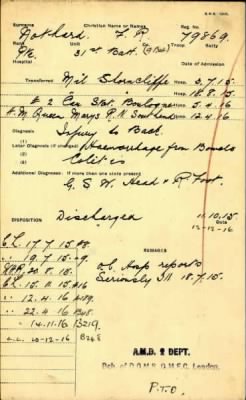 Surname Christian Name or Names Reg. No.
Gothard F. R. 79869.
Rank Unit Co. Troop Batty.
Pte. 31st Batt.
Hospital Date of Admission
Transferred Mil Shorncliffe Hosp. 3.7.15.
Hosp. 18.8.15.
# 2 Can Stat Boulogne Hosp. 5.4.16
H.M. Queen Marys R.N. Southend Hosp. 12.4.16
Diagnosis Injury to Back.
(1) Later Diagnosis (if changed) Haemorrhage from Bowels
Colitis
Additional Diagnoses: If more than one state present
G.S.W. Head & R Foot.
DISPOSITION Discharged 11.10.15
12-12-16
C.L. 17.7.15
" 19.7.15 REMARKS
20.8.15. o/c Hosp reports
C.L. 15.11.15 Seriously Ill 18.7.15.
" 12.4.16
" 22.4.16
" 14-11-16 B219.
C.L. 20-12-16 B248
A.M.D. 2 DEPT.
Bch. of D.G.M.S. O.M.F.C. London.
P.T.O.